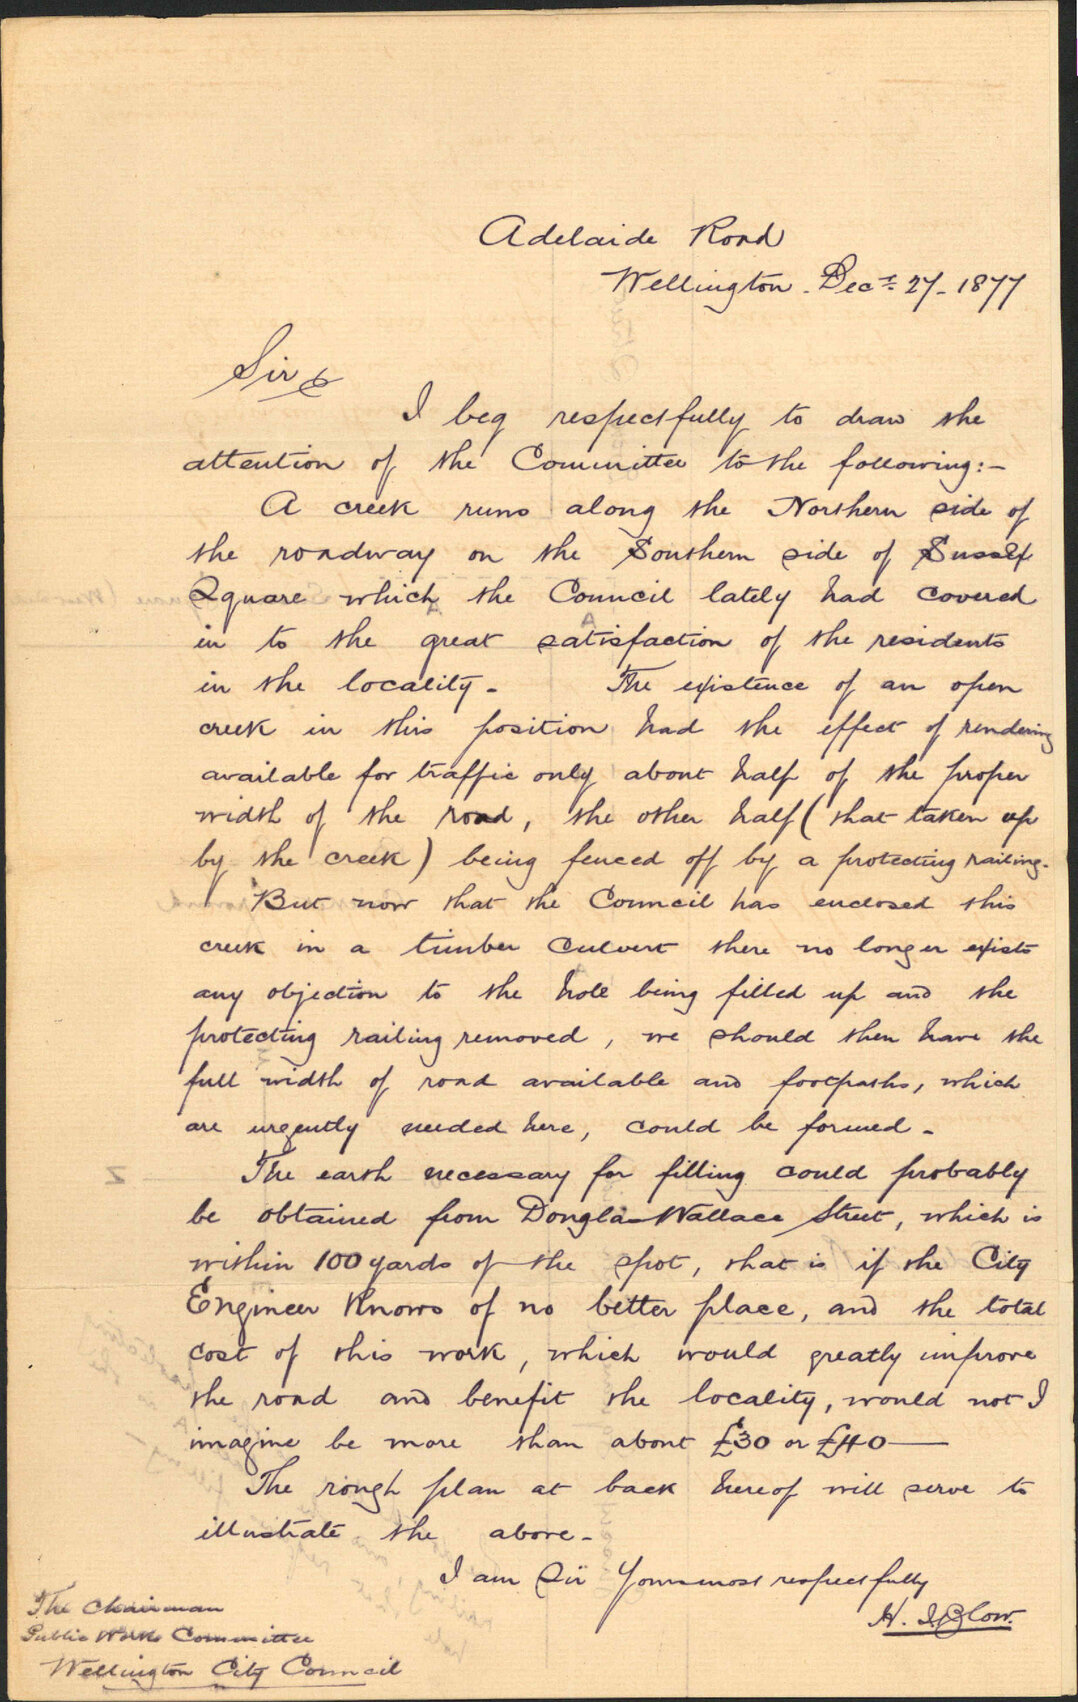 Adelaide Road
Wellington. Decr. 27. 1877
Sir,
I beg respectfully to draw the
attention of the Committee to the following:-
A creek runs along the Northern side of
the roadway on the Southern side of Sussex
Square which the Council lately had covered
in to the great satisfaction of the residents
in the locality. The existence of an open
creek in this position had the effect of rendering
available for traffic only about half of the proper
width of the road, the other half (that taken up
by the creek) being fenced off by a protecting railing.
But now that the Council has enclosed this
creek in a timber culvert there no longer exists
any objection to the hole being filled up and the
protecting railing removed, we should then have the
full width of road available and footpaths, which
are urgently needed here, could be formed.
The earth necessary for filling could probably
be obtained from Douglas Wallace Street, which is
within 100 yards of the spot, that is if the City
Engineer knows of no better place, and the total
cost of this work, which would greatly improve
the road and benefit the locality, would not I
imagine be more than about £30 or £40
The rough plan at back hereof will serve to
illustrate the above.
I am Sir Yours most respectfully
H. J. Blow.
The Chairman
Public Works Committee
Wellington City Council